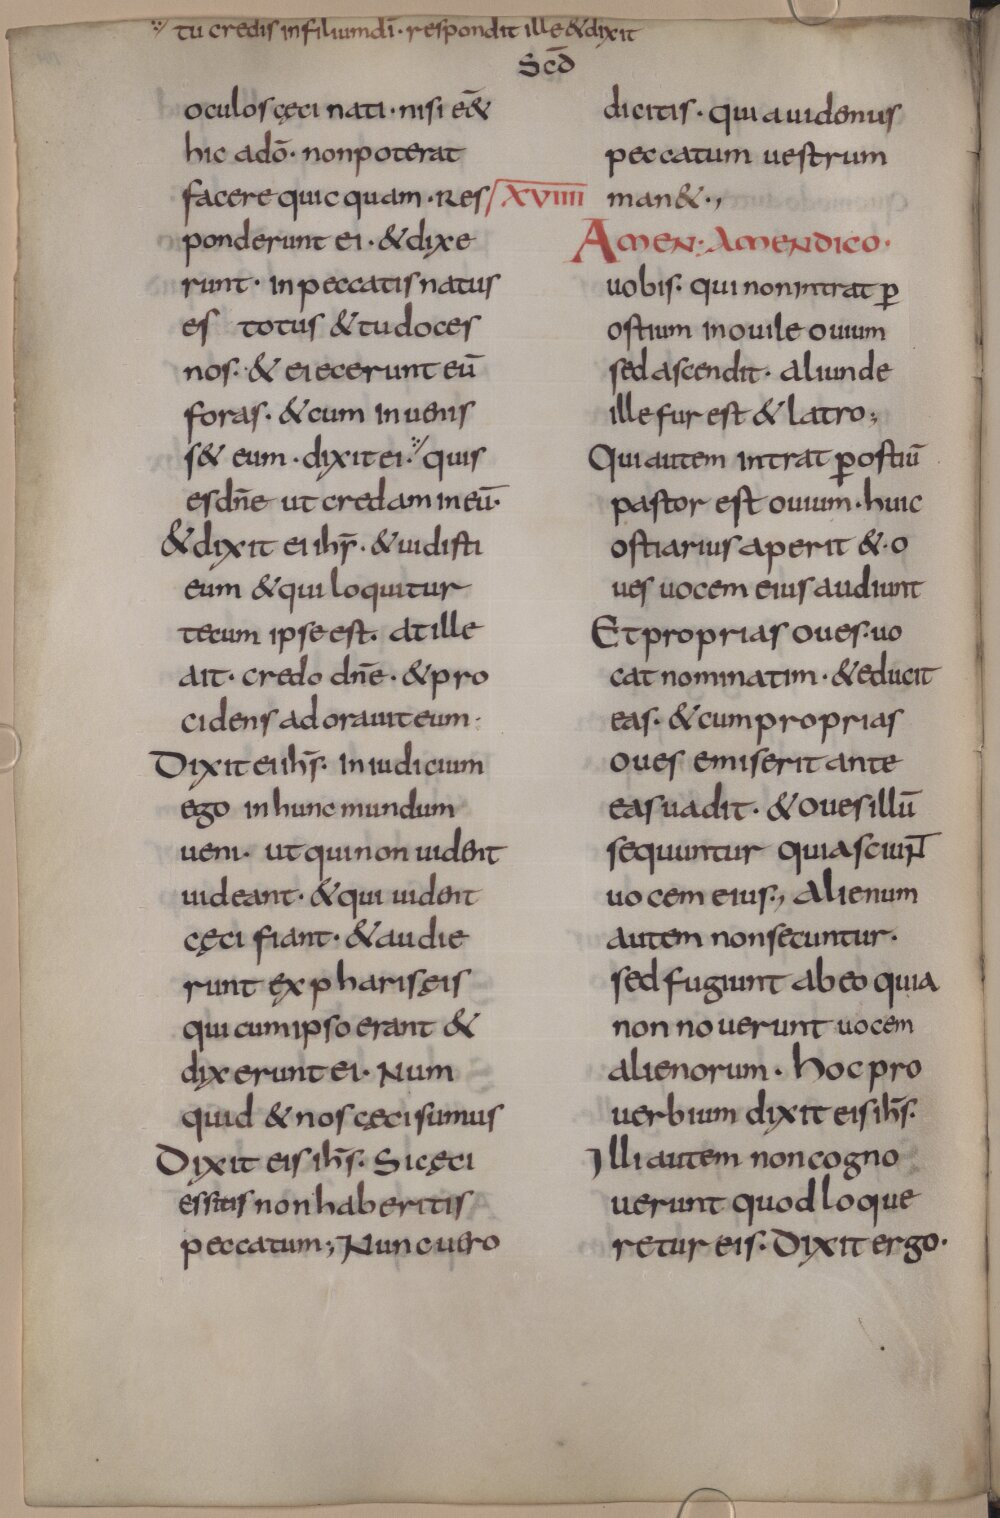 tu credis in filium dī· respondit ille & dixit
Scd̄
oculos cęci nati· nisi ēēt
hic adō· non poterat
facere quic quam· Res
ponderunt ei· & dixe
runt· in peccatis natus
es totus & tu doces
nos· & eiecerunt eū
foras· & cum inuenis
s& eum· dixit ei· quis
es dn̄e ut credam in eū·
& dixit ei ihs̄· & uidisti
eum & qui loquitur
tecum ipse est· at ille
ait· credo dn̄e· & pro
cidens adorauit eum·
Dixit ei ihs̄· in iudicium
ego in hunc mundum
ueni· ut qui non uident
uideant· & qui uident
cęci fiant· & audie
runt ex phariseis
qui cum ipso erant &
dixerunt ei· Num
quid & nos cęci sumus
Dixit eis ihs̄· Si cęci
essetis non haberitis
peccatum; Nunc uero
dicitis· quia uidemus
peccatum uestrum
XVIIII man&·,
Amen· Amen dico·
uobis· qui non intrat ꝑ
ostium in ouile ouium
sed ascendit· aliunde
ille fur est & latro;
Qui autem intrat ꝑ ostiū
pastor est ouium· huic
ostiarius aperit &· o
ues uocem eius audiunt
Et proprias oues· uo
cat nominatim· & educit
eas· & cum proprias
oues emiserit ante
eas uadit· & oues illū
sequuntur quia sciunt
uocem eius·, Alienum
autem non secuntur·
sed fugiunt ab eo quia
non nouerunt uocem
alienorum· hoc pro
uerbium dixit eis ihs̄·
Illi autem non cogno
uerunt quod loque
retur eis· Dixit ergo·